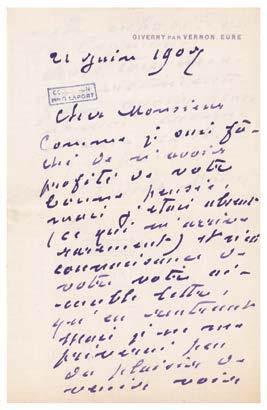 GIVERNY PAR VERNON. EURE
21 juin 1907
Cher Monsieur
Comme je suis fâ-
ché de n'avoir
profité de votre
bonne pensée,
mais j'étais absent
(ce qui m'arrive
rarement) et n'ai
connaissance de
votre votre ai-
mable lettre,
qu'en rentrant
mais je ne me
priverai pas
du plaisir de
venir voir